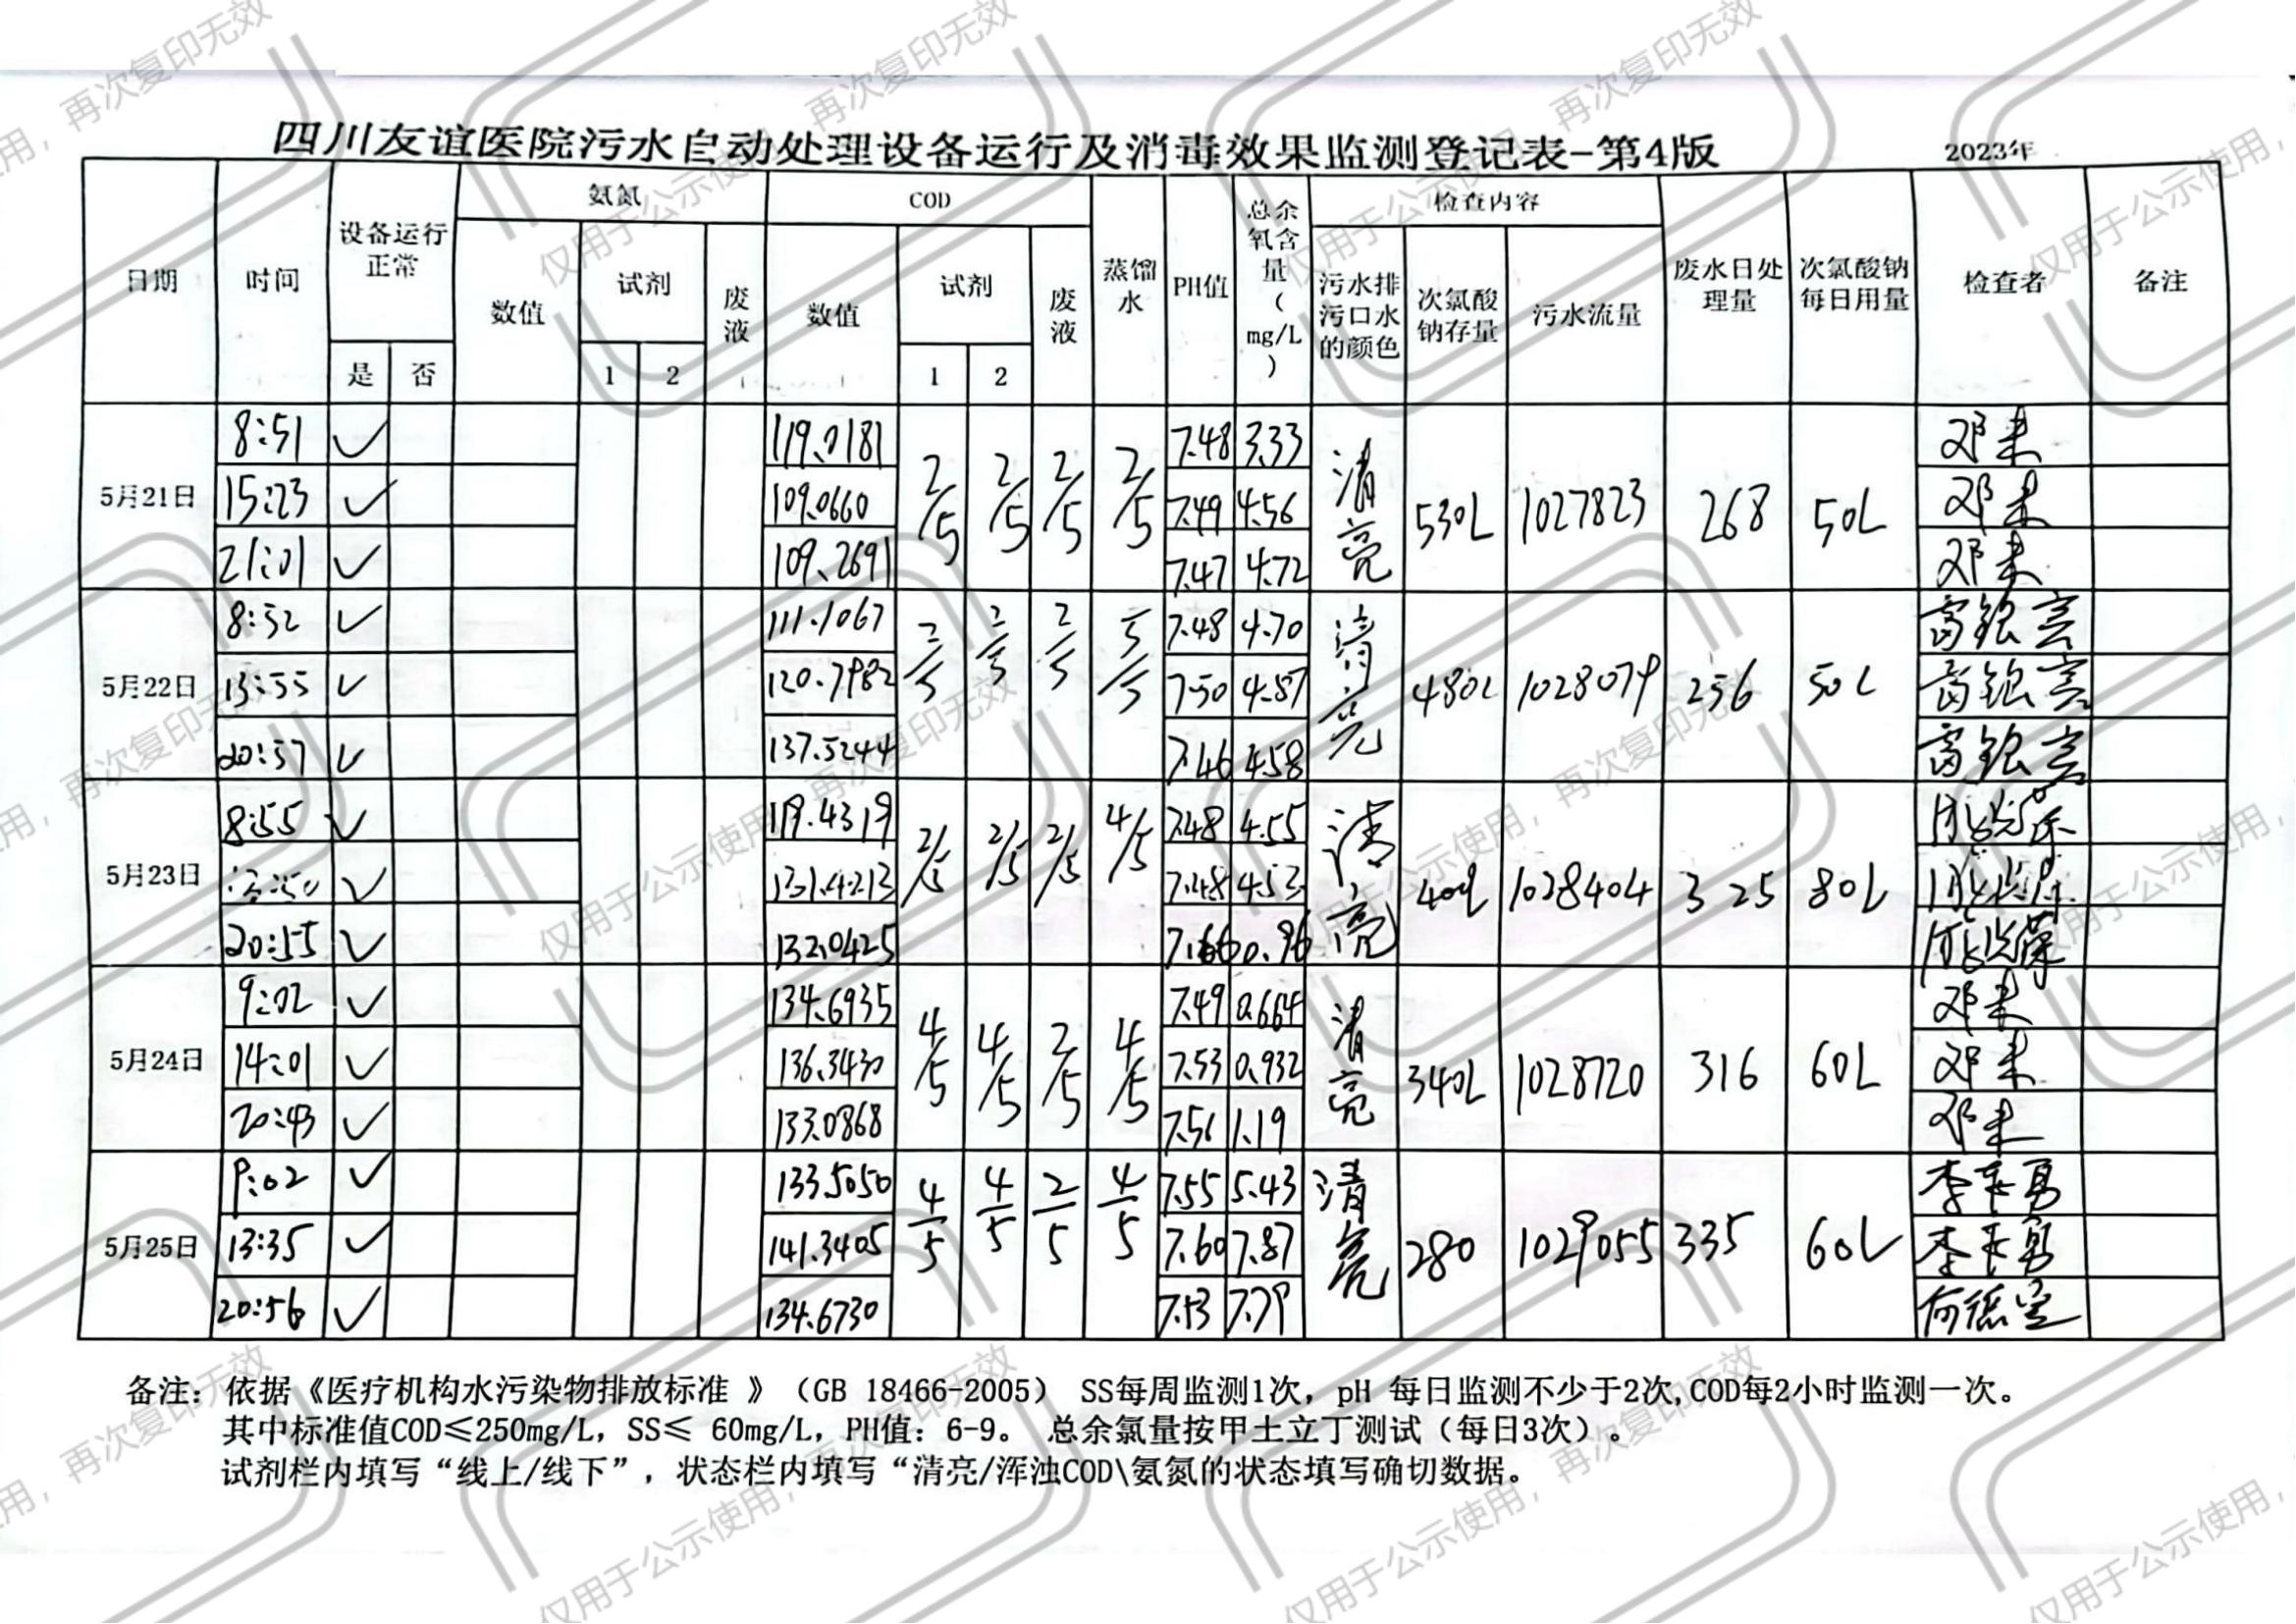 四川友谊医院污水自动处理设备运行及消毒效果监测登记表-第4版 2023年
日期 时间 设备运行正常 是 否 氨氮 数值 试剂 1 2 废液 COD 数值 试剂 1 2 废液 蒸馏水 PH值 总余氧含量(mg/L) 检查内容 污水排污口水的颜色 次氯酸钠存量 污水流量 废水日处理量 次氯酸钠每日用量 检查者 备注
5月21日 8:51 ✓ 119.0181 2/5 2/5 2/5 2/5 7.48 3.33 清亮 530L 1027823 268 50L 邓未
15:23 ✓ 109.0660 7.49 4.56 邓未
21:01 ✓ 109.2691 7.47 4.72 邓未
5月22日 8:52 ✓ 111.1067 2/5 2/5 2/5 5/5 7.48 4.70 清亮 480L 1028079 256 50L
13:55 ✓ 120.7982 7.50 4.87
20:57 ✓ 137.5244 7.46 4.58
5月23日 8:55 ✓ 119.4319 2/5 2/5 2/5 4/5 7.48 4.55 清亮 400L 1028404 325 80L
✓ 131.4213 7.48 4.53
20:55 ✓ 132.0425 7.66 0.96
5月24日 9:02 ✓ 134.6935 4/5 4/5 2/5 4/5 7.49 0.664 清亮 340L 1028720 316 60L 邓未
14:01 ✓ 136.3430 7.53 0.932 邓未
20:43 ✓ 133.0868 7.56 1.19 邓未
5月25日 9:02 ✓ 133.5050 4/5 4/5 2/5 4/5 7.55 5.43 清亮 280 1029055 335 60L
13:35 ✓ 141.3405 7.60 7.87
20:56 ✓ 134.6730 7.53 7.79
备注：依据《医疗机构水污染物排放标准 》（GB 18466-2005） SS每周监测1次，pH 每日监测不少于2次,COD每2小时监测一次。
其中标准值COD≤250mg/L，SS≤ 60mg/L，PH值：6-9。 总余氯量按甲土立丁测试（每日3次）。
试剂栏内填写“线上/线下”，状态栏内填写“清亮/浑浊COD\氨氮的状态填写确切数据。
仅用于公示使用，再次复印无效